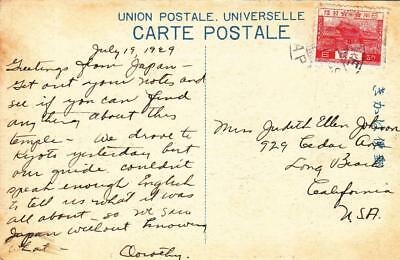 UNION POSTALE UNIVERSELLE
CARTE POSTALE
July 19, 1929
Greetings from Japan -
Get out your notes and
see if you can find
anything about this
temple - We drove to
Kyoto yesterday but
our guide couldn't
speak enough English
to tell us what it was
all about - so we saw
Japan without knowing
what -
Dorothy.
Miss Judith Ellen Johnson
929 Cedar Ave
Long Beach
California
U.S.A.